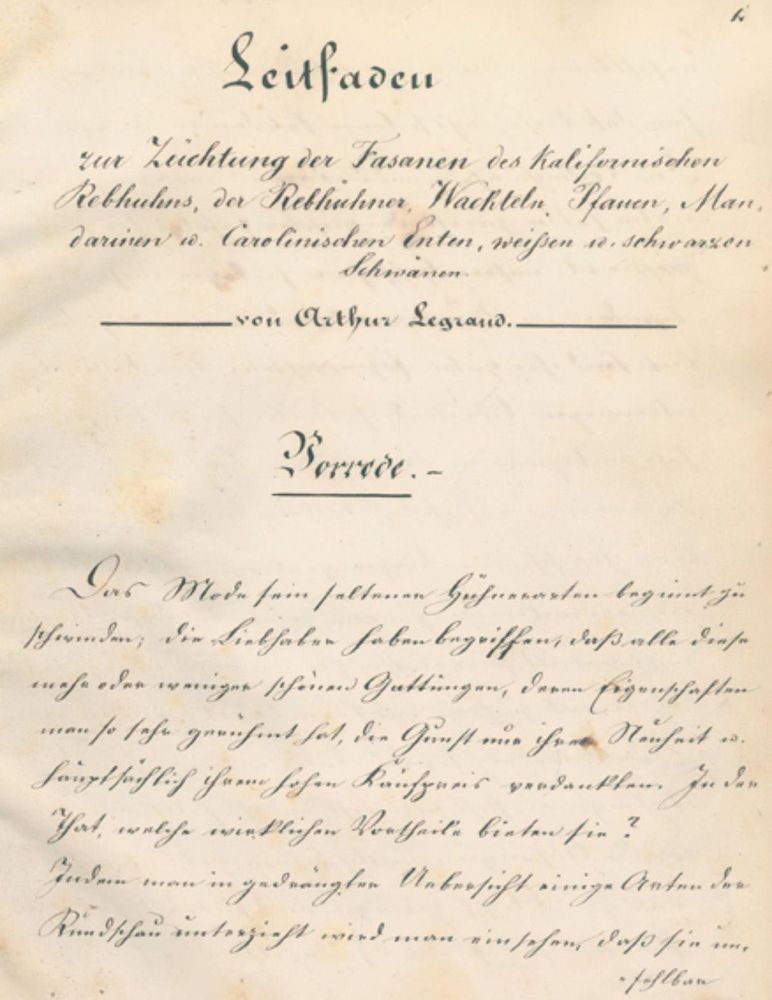 1.
Leitfaden
zur Züchtung der Fasanen des Kalifornischen
Rebhuhns, der Rebhühner, Wachteln, Pfauen, Man-
darinen u. Carolinischen Enten, weißen u. schwarzen
Schwänen.
von Arthur Legrand.
Vorrede.-
Das Mode sein seltener Hühnerarten beginnt zu
schwinden; die Liebhaber haben begriffen, daß alle diese
mehr oder weniger schönen Gattungen, deren Eigenschaften
man so sehr gerühmt hat, die Gunst nur ihrer Neuheit u.
hauptsächlich ihrem hohen Kaufpreis verdankten. In der
That, welche wirklichen Vortheile bieten sie?
Indem man in gedrängter Uebersicht einige Arten der
Rundschau unterzieht wird man einsehen, daß sie un-
fehlbar